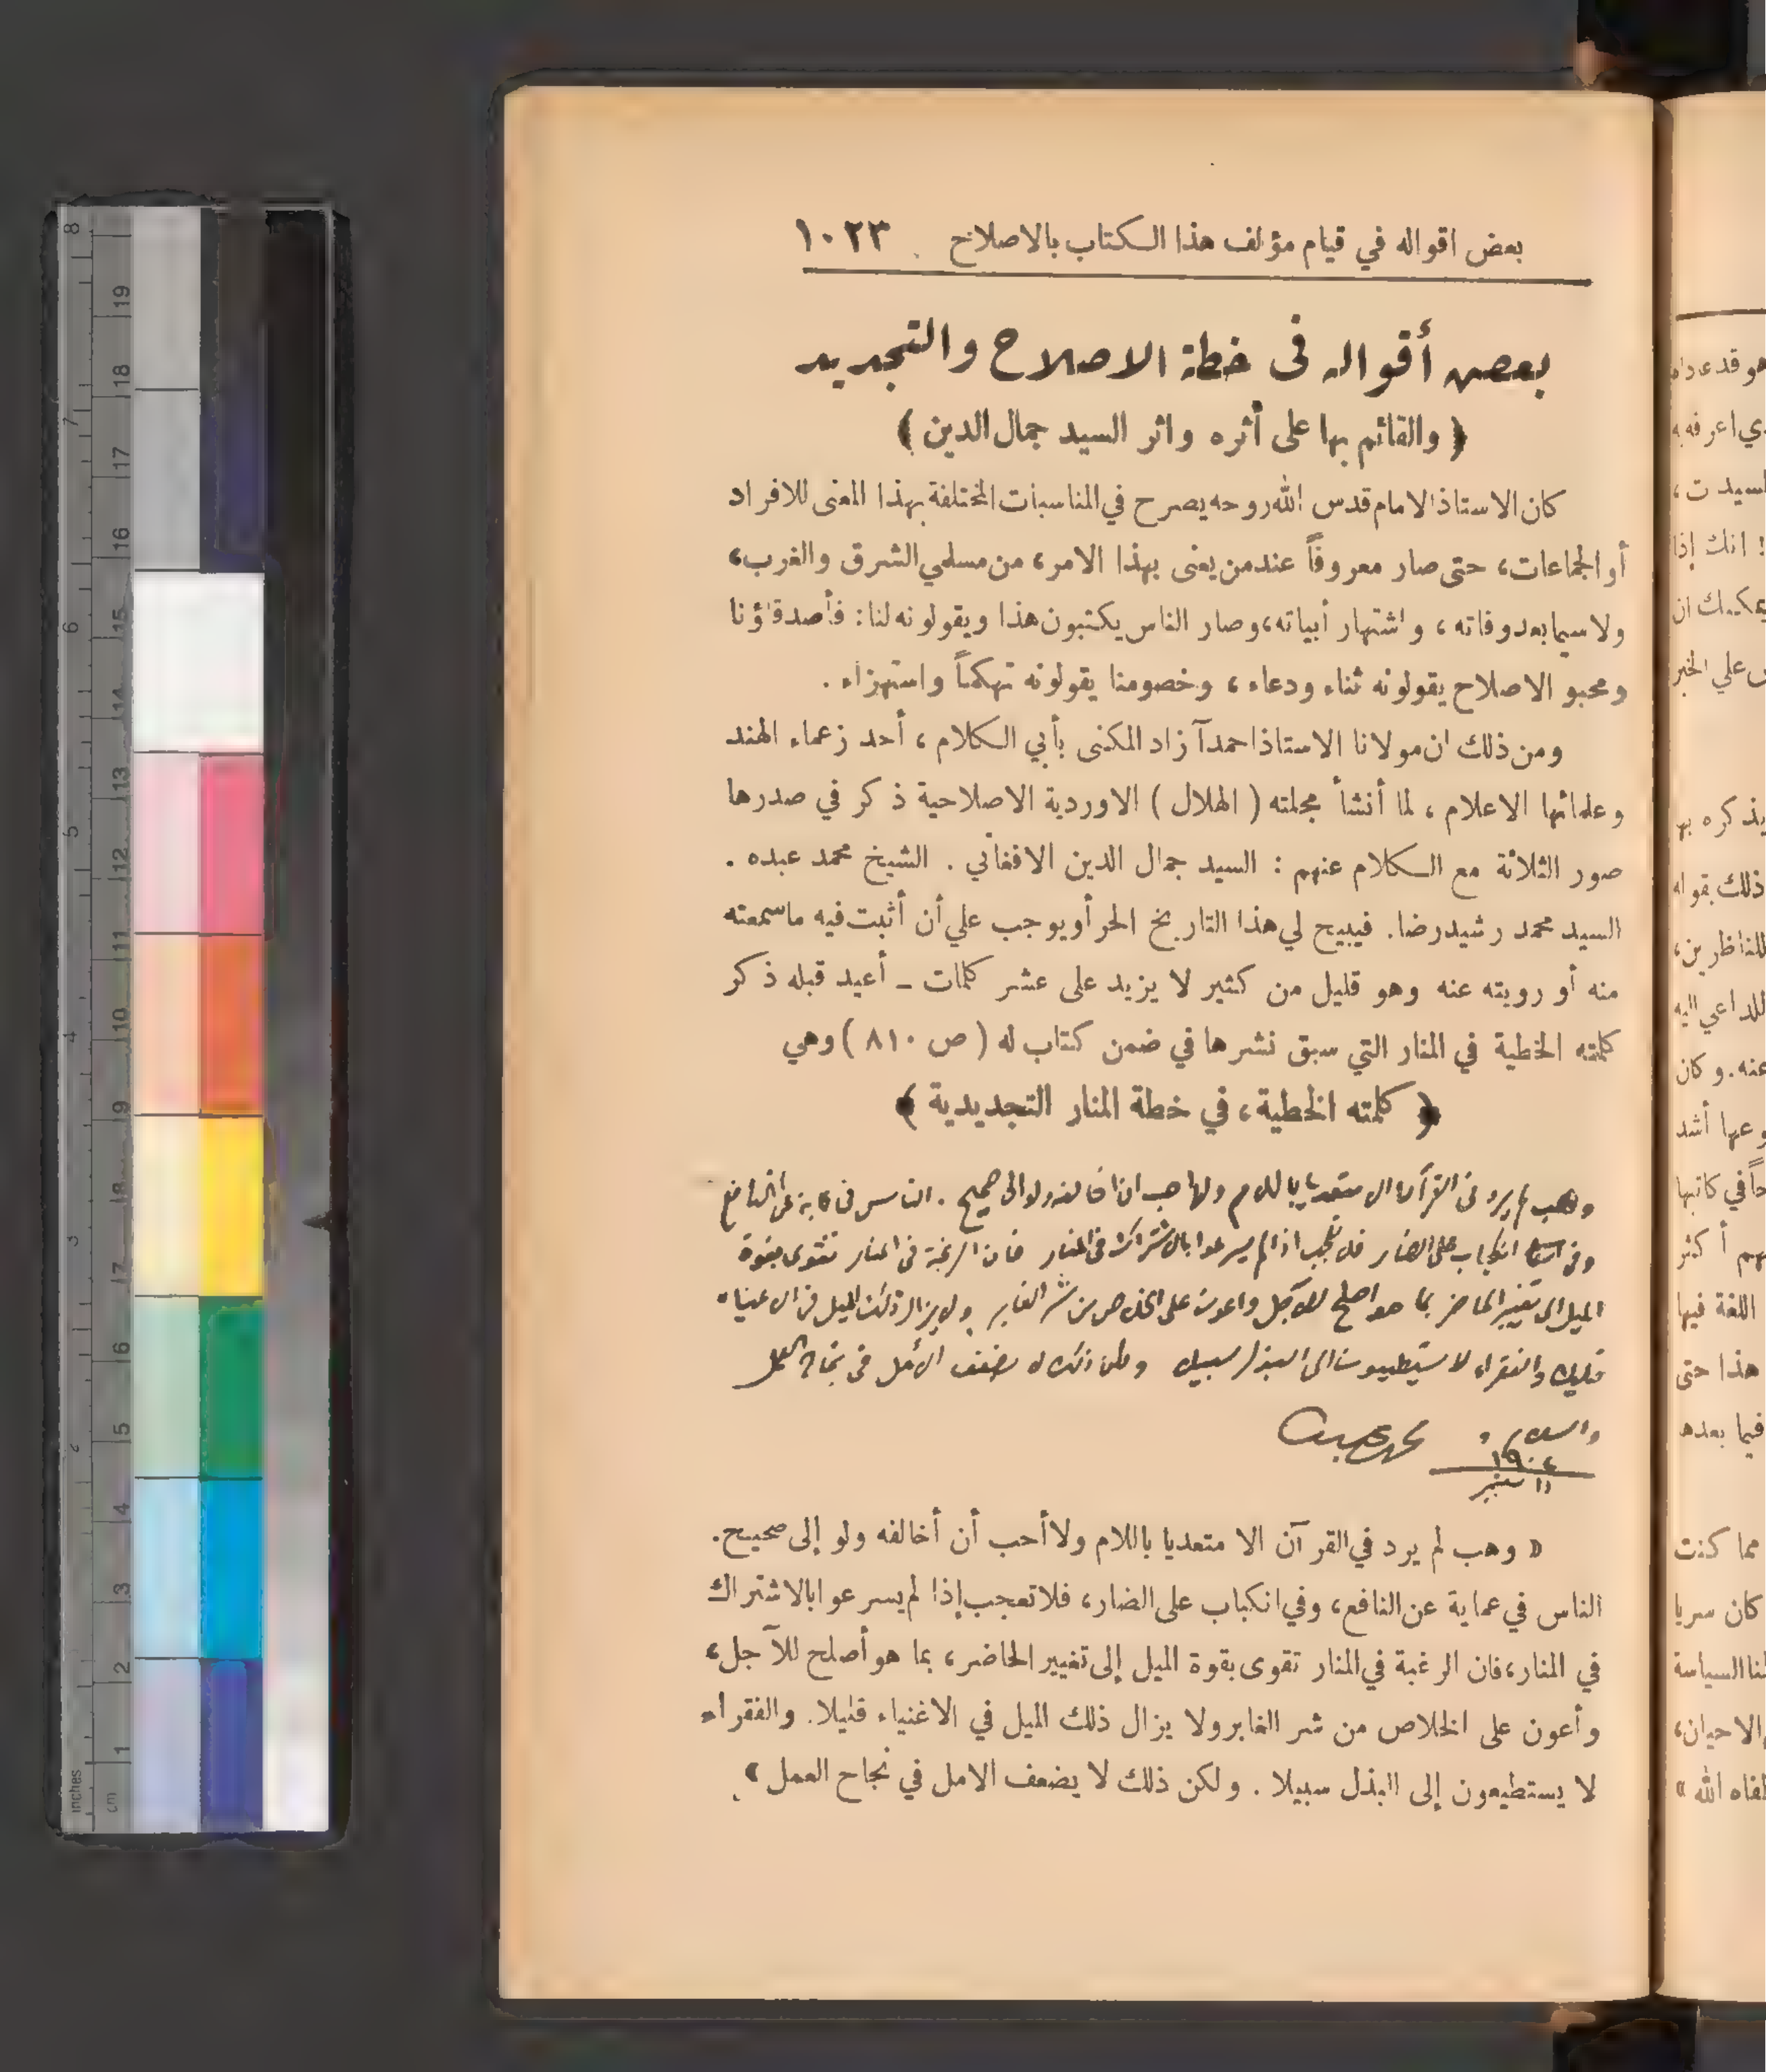 بعض اقواله في قيام مؤلف هذا الكتاب بالاصلاح ١٠٢٣
بعض أقواله في خطة الاصلاح والتجديد
﴿ والقائم بها على أثره واثر السيد جمال الدين ﴾
كان الاستاذ الامام قدس الله روحه يصرح في المناسبات المختلفة بهذا المعنى للافراد
أو الجماعات، حتى صار معروفاً عند من يعنى بهذا الامر، من مسلمي الشرق والغرب،
ولا سيما بعد وفاته، واشتهار أبياته، وصار الناس يكتبون هذا ويقولونه لنا: فأصدقاؤنا
ومحبو الاصلاح يقولونه ثناء ودعاء، وخصومنا يقولونه تهكماً واستهزاء.
ومن ذلك ان مولانا الاستاذ احمد آزاد المكنى بأبي الكلام، أحد زعماء الهند
وعلمائها الاعلام، لما أنشأ مجلته ( الهلال ) الاوردية الاصلاحية ذكر في صدرها
صور الثلاثة مع الكلام عنهم : السيد جمال الدين الافغاني . الشيخ محمد عبده .
السيد محمد رشيد رضا. فيبيح لي هذا التاريخ الحر أو يوجب علي أن أثبت فيه ما سمعته
منه أو رويته عنه وهو قليل من كثير لا يزيد على عشر كلمات ـ أعيد قبله ذكر
كلمته الخطية في المنار التي سبق نشرها في ضمن كتاب له ( ص ٨١٠ ) وهي
﴿ كلمته الخطية، في خطة المنار التجديدية ﴾
وهب لم يرد في القرآن الا متعديا باللام ولا احب ان اخالفه ولو الى صحيح . الناس في عماية عن النافع
وفي انكباب على الضار فلا تعجب اذا لم يسرعوا بالاشتراك في المنار فان الرغبة في المنار تقوى بقوة
الميل الى تغيير الحاضر بما هو اصلح للآجل واعون على الخلاص من شر الغابر ولا يزال ذلك الميل في الاغنياء
قليلا والفقراء لا يستطيعون الى البذل سبيلا ولكن ذلك لا يضعف الأمل في نجاح العمل
والسلام محمد عبده
١٩٠٤
١١ سبتمبر
« وهب لم يرد في القرآن الا متعديا باللام ولا أحب أن أخالفه ولو إلى صحيح.
الناس في عماية عن النافع، وفي انكباب على الضار، فلا تعجب إذا لم يسرعوا بالاشتراك
في المنار، فان الرغبة في المنار تقوى بقوة الميل إلى تغيير الحاضر، بما هو أصلح للآجل،
وأعون على الخلاص من شر الغابر ولا يزال ذلك الميل في الاغنياء قليلا. والفقراء
لا يستطيعون إلى البذل سبيلا . ولكن ذلك لا يضعف الامل في نجاح العمل »